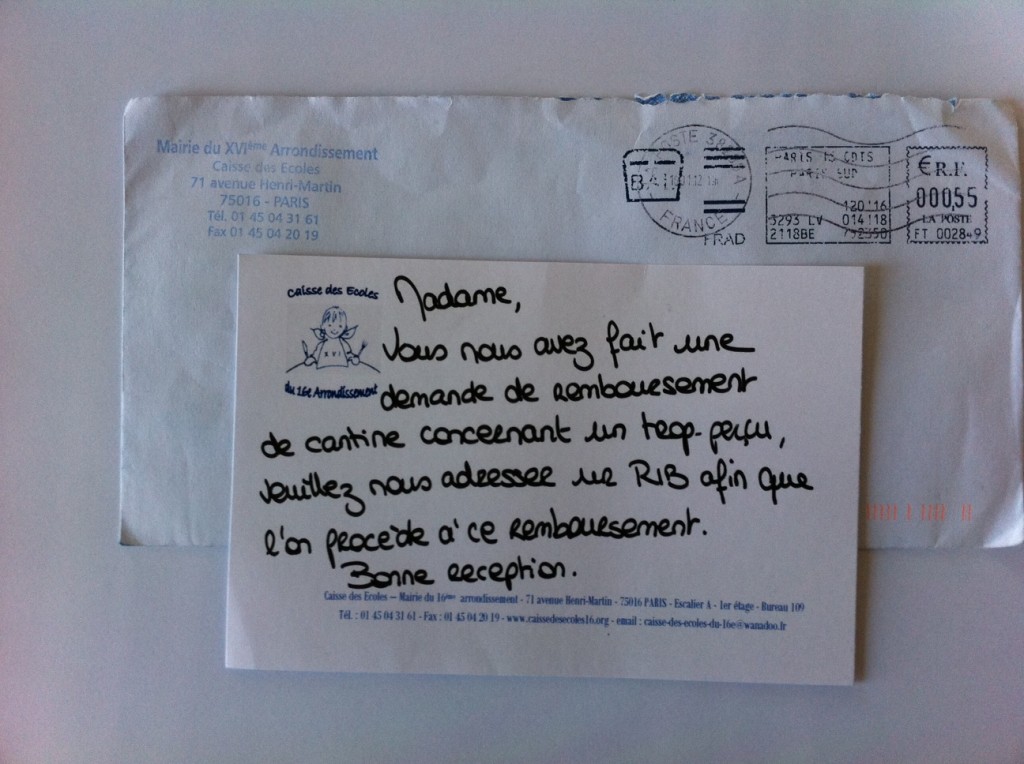 Mairie du XVIème Arrondissement
Caisse des Ecoles
71 avenue Henri-Martin
75016 - PARIS
Tél. 01 45 04 31 61
Fax 01 45 04 20 19
FRANCE
FRAD
PARIS 15 CDTS
PARIS SUP
120'16
3293 LV 014118
2118BE
€ R.F.
000,55
LA POSTE
FT 002849
Caisse des Ecoles
XVI
du 16e Arrondissement
Madame,
Vous nous avez fait une
demande de remboursement
de cantine concernant un trop-perçu,
veuillez nous adresser un RIB afin que
l'on procède à ce remboursement.
Bonne réception.
Caisse des Ecoles – Mairie du 16ème arrondissement - 71 avenue Henri-Martin - 75016 PARIS - Escalier A - 1er étage - Bureau 109
Tél. : 01 45 04 31 61 - Fax : 01 45 04 20 19 - www.caissedesecoles16.org - email : caisse-des-ecoles-du-16e@wanadoo.fr